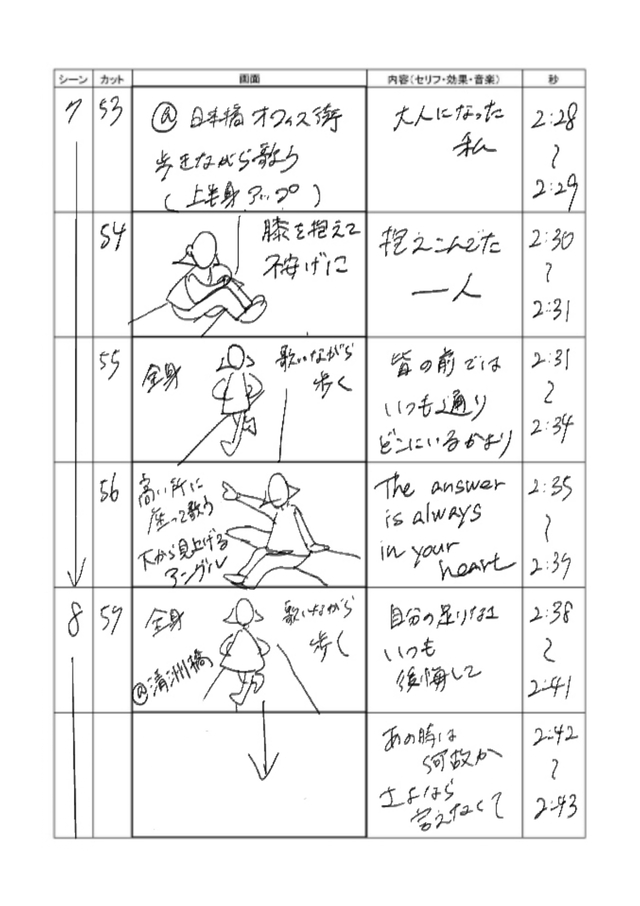 シーン カット 画面 内容(セリフ・効果・音楽) 秒
7 53
@ 日本橋 オフィス街
歩きながら歌う
(上半身アップ)
大人になった
私
2:28
~
2:29
54
膝を抱えて
不安げに
抱えこんでた
一人
2:30
~
2:31
55
全身
歌いながら
歩く
皆の前では
いつも通り
どこにいるかより
2:31
~
2:34
56
高い所に
座って歌う
下から見上げる
アングル
The answer
is always
in your
heart
2:35
~
2:39
8 57
全身
歌いながら
歩く
@清洲橋
自分の足りなさ
いつも
後悔して
2:38
~
2:41
あの時は
何故か
さよなら
言えなくて
2:42
~
2:43